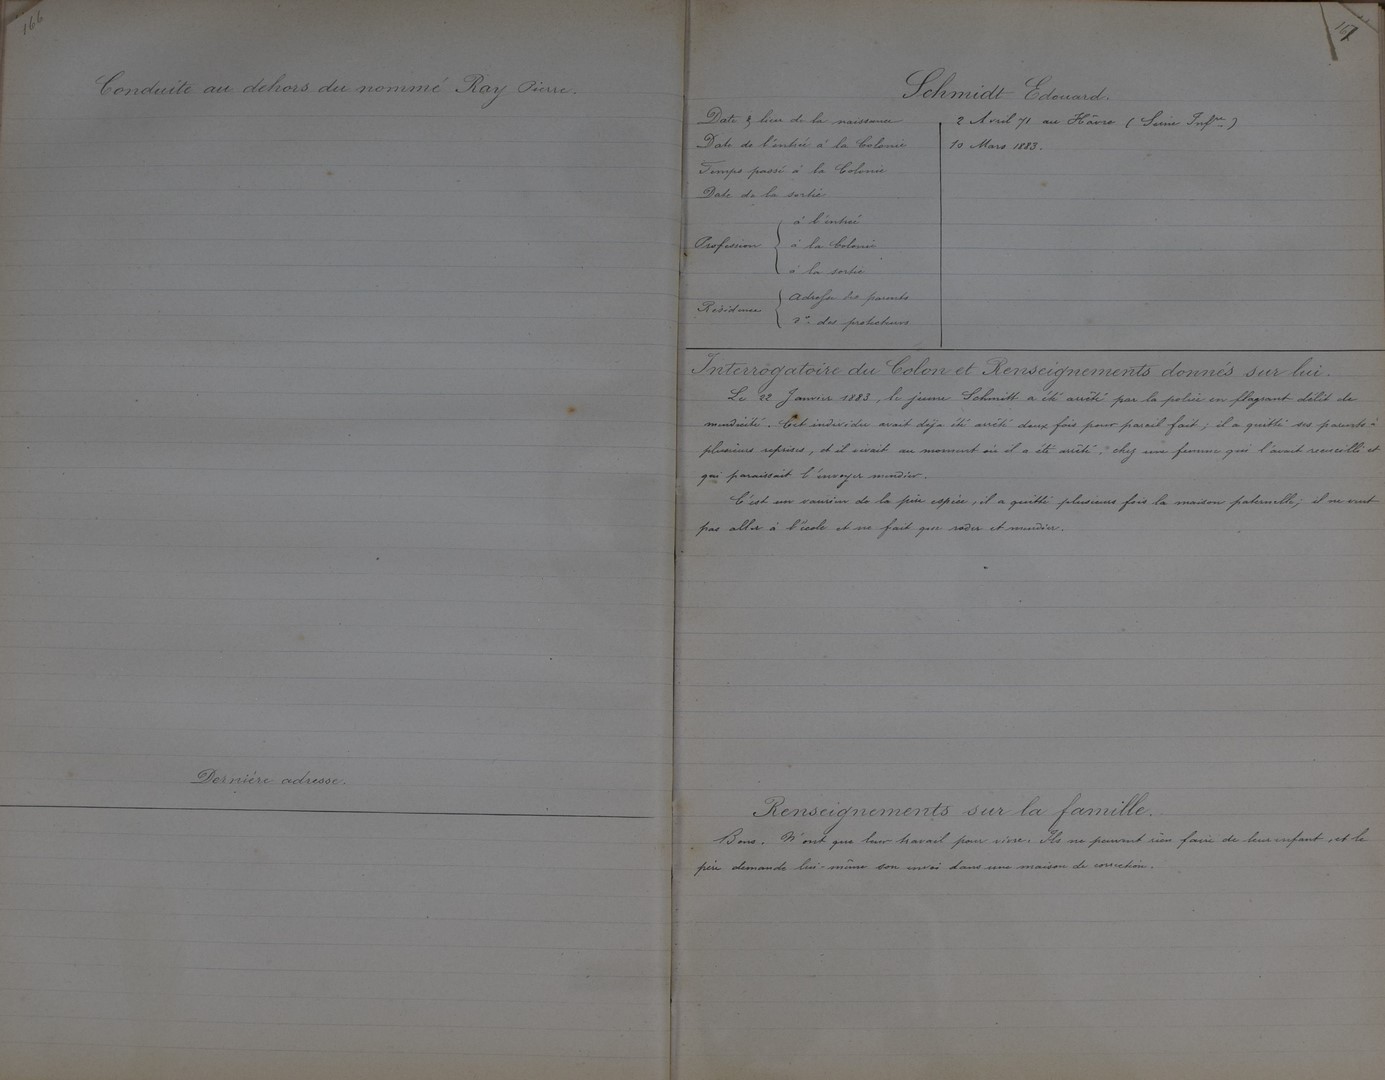 166
Conduite au dehors du nommé Ray Pierre.
Dernière adresse.
167
Schmidt Edouard.
Date & lieu de la naissance 2 Avril 71 au Hâvre (Seine Infre)
Date de l'entrée à la Colonie 10 Mars 1883.
Temps passé à la Colonie
Date de la sortie
à l'entrée
Profession à la Colonie
à la sortie
Résidence adresse des parents
do des protecteurs
Interrogatoire du Colon et Renseignements donnés sur lui.
Le 22 Janvier 1883, le jeune Schmitt a été arrêté par la police en flagrant délit de
mendicité. Cet individu avait déjà été arrêté deux fois pour pareil fait; il a quitté ses parents à
plusieurs reprises, et il vivait au moment où il a été arrêté, chez une femme qui l'avait recueilli et
qui paraissait l'envoyer mendier.
C'est un vaurien de la pire espèce, il a quitté plusieurs fois la maison paternelle; il ne veut
pas aller à l'école et ne fait que roder et mendier.
Renseignements sur la famille.
Bons. N'ont que leur travail pour vivre. Ils ne peuvent rien faire de leur enfant, et le
père demande lui-même son envoi dans une maison de correction.